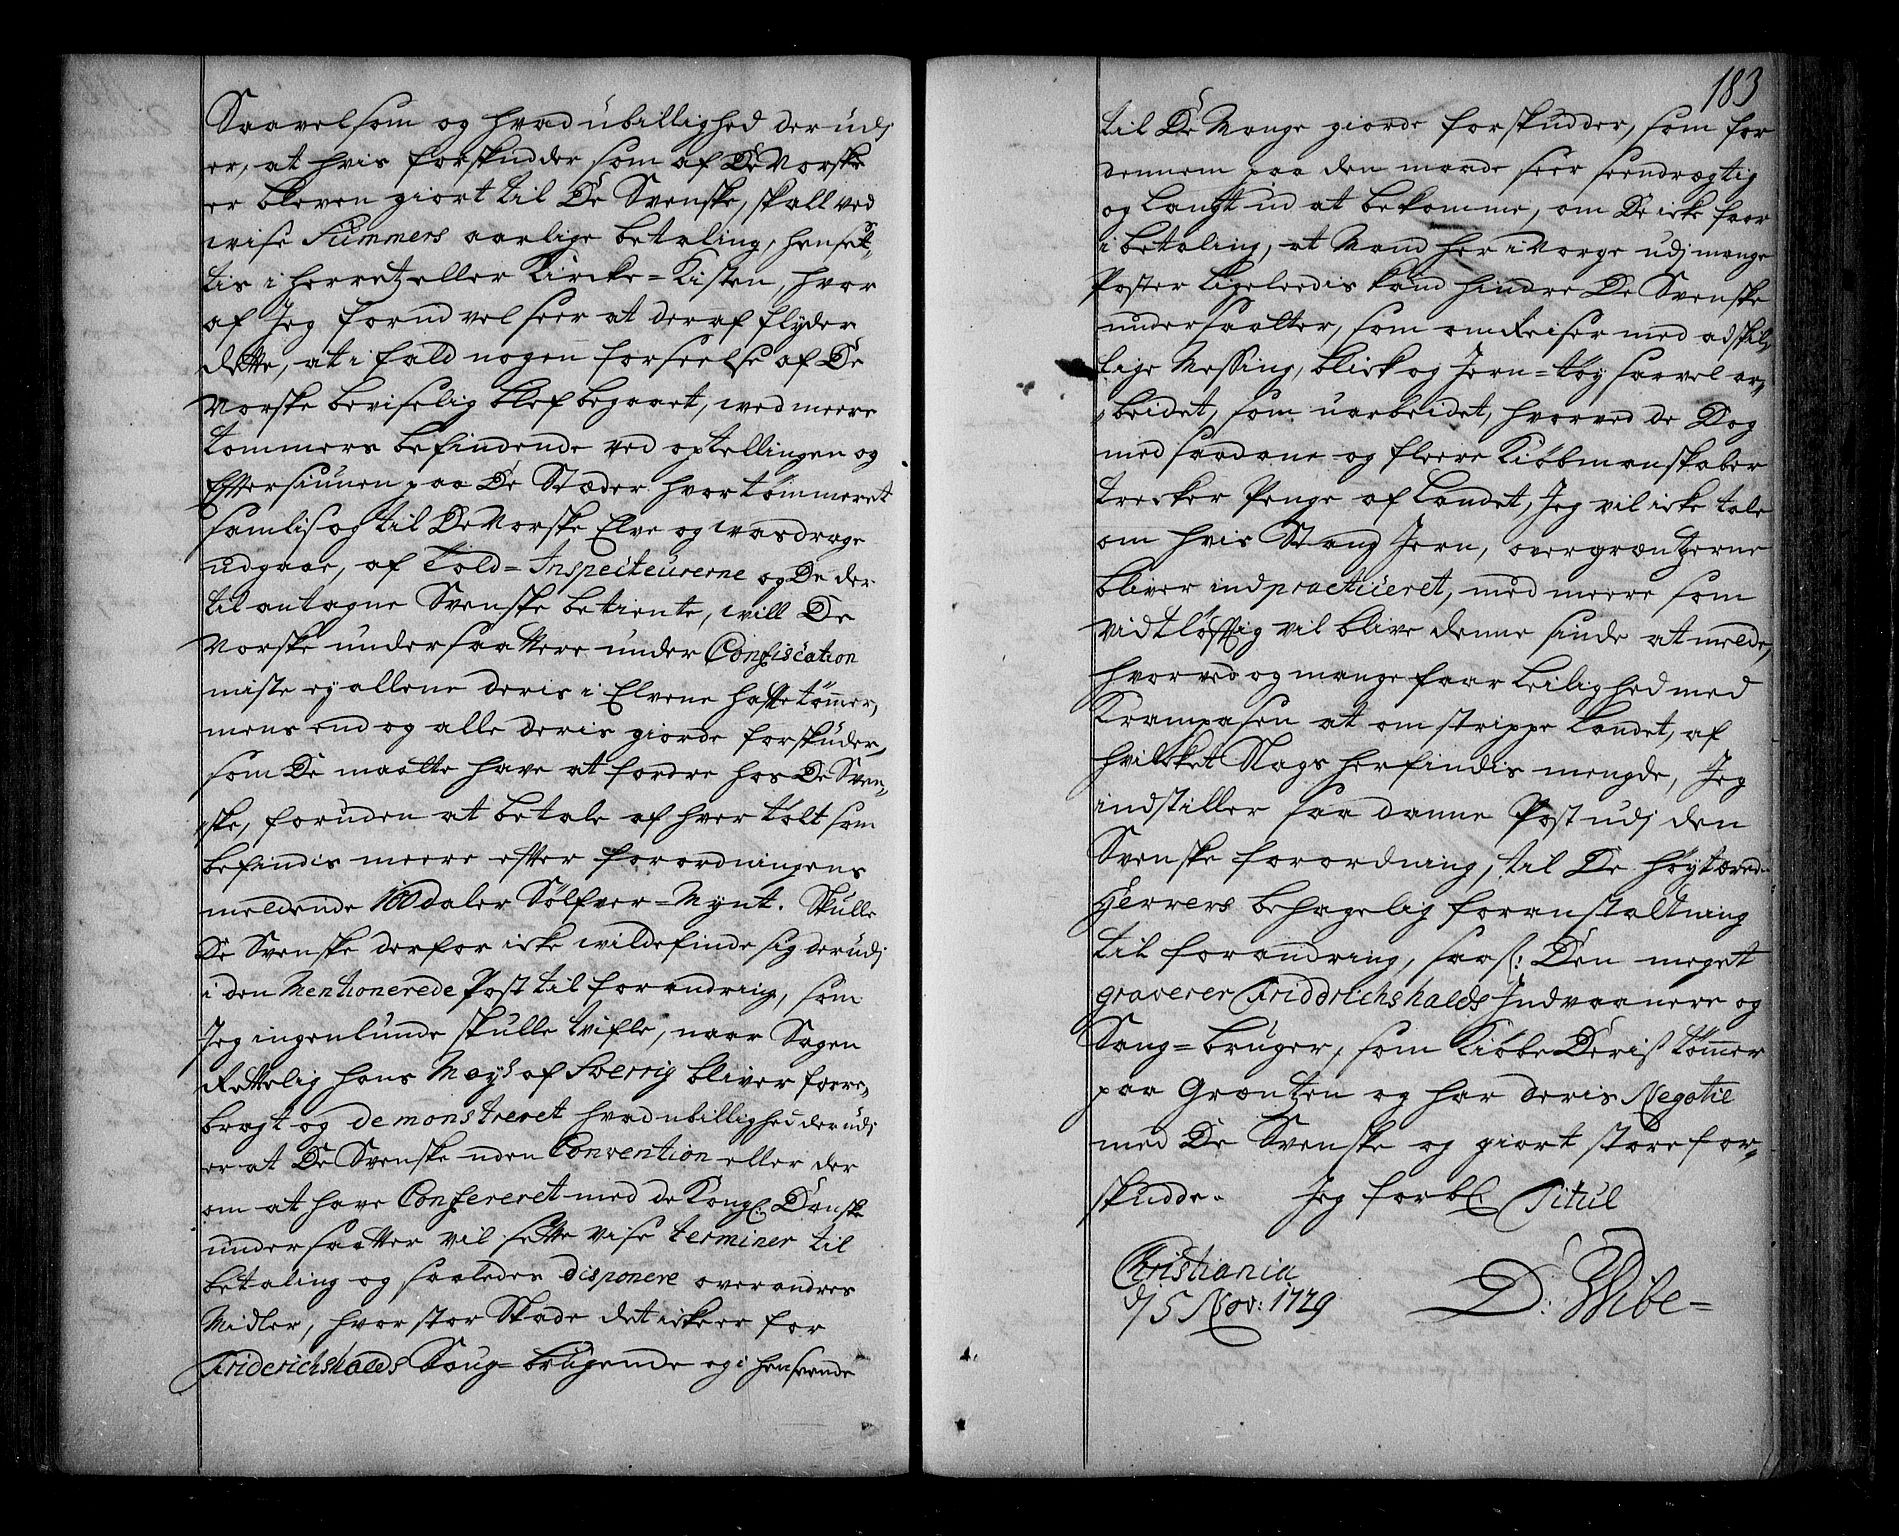 Saavelsom og hvad ubillighed der udj
er, at hvis forskudder som af De Norske
er bleven giort til De Svenske, skall ved
wise Summers aarlige betaling, hensæt-
tis i herretz eller Kircke-Kisten, hvor
af Jeg forud vel seer at deraf flyder
dette, at i fald nogen forseelse af De
Norske beviselig blef begaaet, wed meere
tømmers befindende ved optellingen og
Eftersiunen paa De Stæder hvor tømmeret
samlis og til De Norske Elve og wasdrage
udgaar, af Told-Inspecteurerne og De der
til antagne Svenske betiente, will De
Norske undersaattere under Confiscation
miste ey allene deris i Elvene hafte tømmer,
mens end og alle deris giorde forskuder,
som De maatte have at fordre hos De Sven-
ske, foruden at betale af hver tolt som
befindis meere efter forordningens
meldende 100 daler Sølfver-Mynt. Skulle
De Svenske derfor icke wilde finde sig der udj
i den Mentionerede Post til forandring, som
Jeg ingenlunde skulle tvifle, naar Sagen
Rettelig hans May:s af Sverrig bliver fore-
bragt og demonstreret hvad ubillighed der udj
er at De Svenske uden Convention eller der
om at have Confereret med de Kongl: Danske
undersaatter vil sette vise terminer til
betaling og saaledes disponere over andres
Midler, hvor stor Skade det icke er for
Friderichshalds Saug-brugende og i henseende
183
til De Mange giorde forskudder, som for
dennem paa den maade seer seendrægtig
og langt ud at bekomme, om De icke faar
i betaling, at Mand her i Norge udj mange
Poster ligeleedis kand hindre De Svenske
undersaatter, som omReiser med adskil-
lige Messing, blick og Jern-tøy saavel ar-
beidet, som uarbeidet, hvorved de Dog
med saadane og fleere Kiøbmanskaber
trecker Penge af Landet, Jeg vil icke tale
om hvis Stang Jern, over græntzerne
bliver ind practiceret, med meere som
vidtløftig vil blive denne sinde at melde,
hvorved og mange faar Leilighed med
Krampasen at omstrippe Landet, af
hvilket Slags her findis mengde, Jeg
indstiller saa danne Post udj den
Svenske forordning, til De høytærede
Herrers behagelig foranstaltning
til forandring, saasl: Den meget
graverer Friddrichshalds Indvaanere og
Saug-bruger, som Kiøbe Deris tømmer
paa Græntzen og har deris Negotie
med De Svenske og giort store for-
skudde. Jeg forbl: Titul
Christiania
d/ 5 Nov: 1729
D: Wibe-